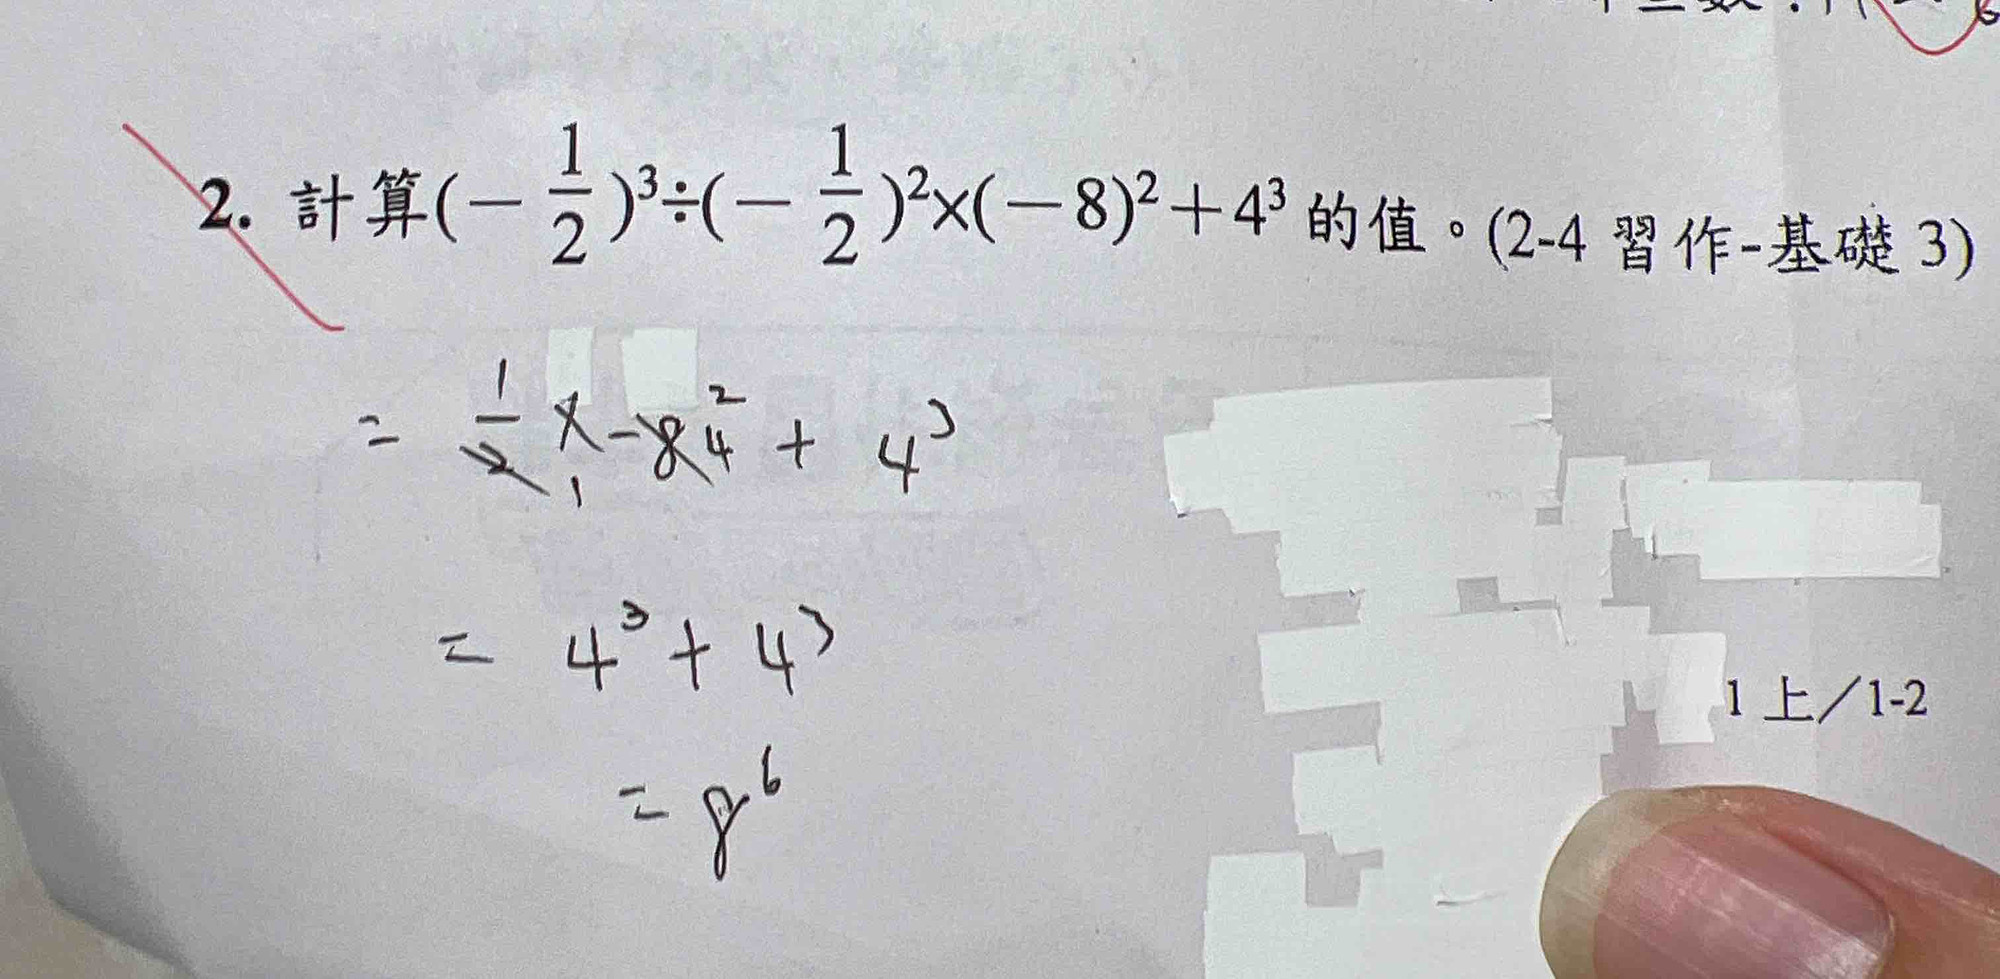 2. 計算(－1/2)³÷(－1/2)²×(－8)²＋4³ 的值。(2-4 習作-基礎 3)
= 1/2 × -8 4² + 4³
1
= 4³ + 4³
1 上／1-2
= 8⁶